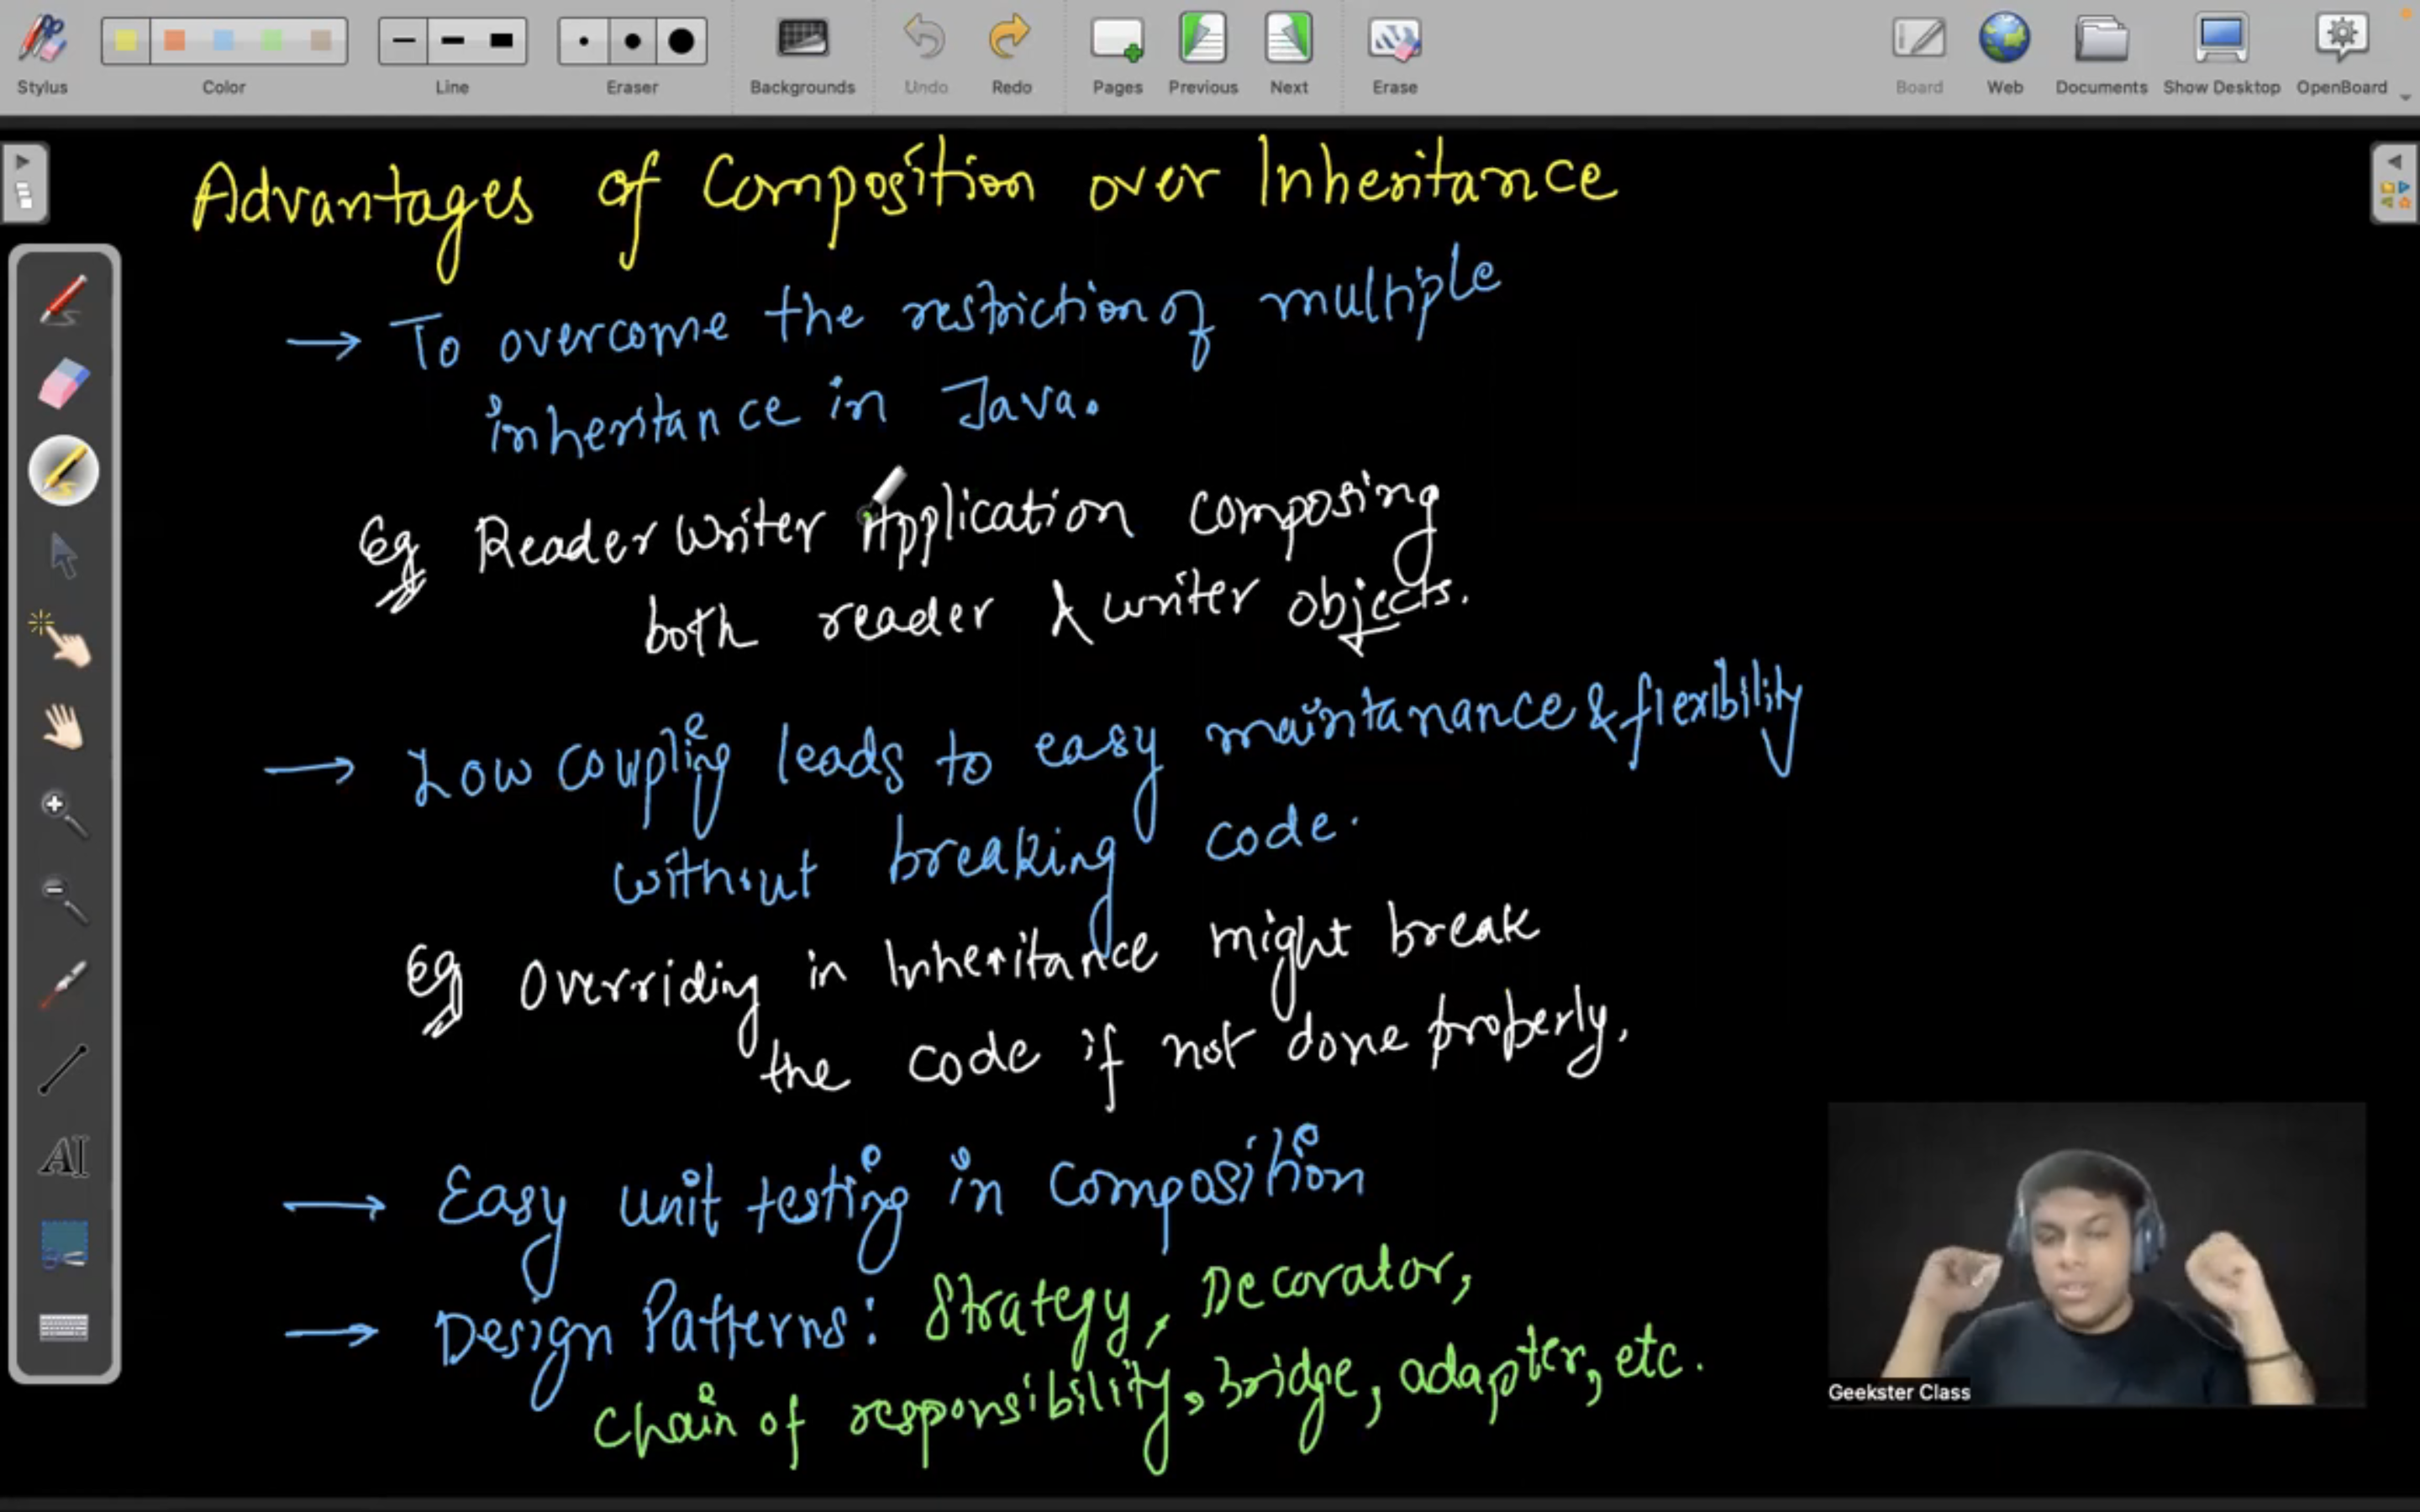 Stylus
Color
Line
Eraser
Backgrounds
Undo
Redo
Pages
Previous
Next
Erase
Board
Web
Documents
Show Desktop
OpenBoard
Advantages of Composition over Inheritance
→ To overcome the restriction of multiple
inheritance in Java.
Eg ReaderWriter Application composing
both reader & writer objects.
→ Low coupling leads to easy maintanance & flexibility
without breaking code.
Eg Overriding in Inheritance might break
the code if not done properly.
→ Easy unit testing in composition
→ Design Patterns: Strategy, Decorator,
Chain of responsibility, bridge, adapter, etc.
AI
Geekster Class